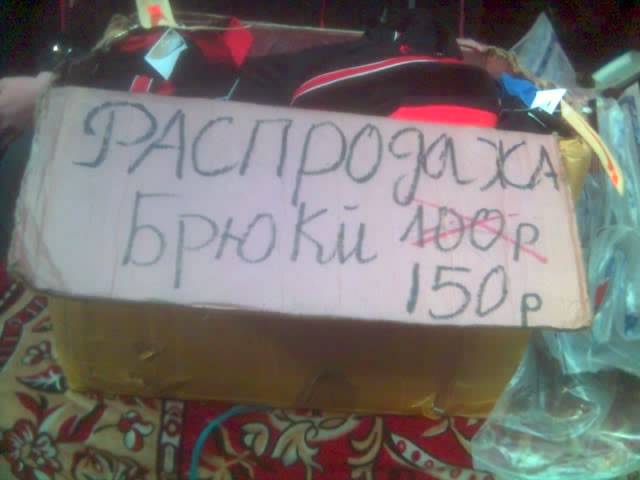 РАСПРОДАЖА
БРЮКЙ 100р
150р